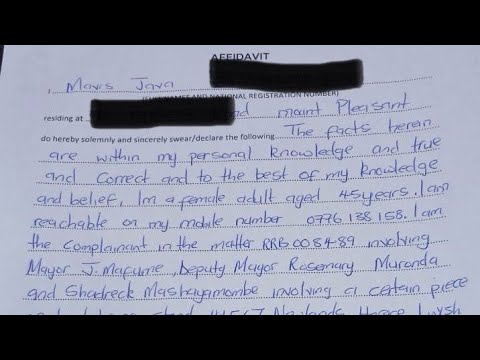 AFFIDAVIT
I, Mavis Java
NATIONAL REGISTRATION NUMBER)
residing at mount Pleasant
do hereby solemnly and sincerely swear/declare the following The facts herein
are within my personal knowledge and true
and correct and to the best of my knowledge
and belief. Im a female adult aged 45 years. I am
reachable on my mobile number 0776 138 158. I am
the complainant in the matter RRB 0058489 involving
Mayor J. Mafume, Deputy Mayor Rosemary Muronda
and Shadreck Mashayamombe involving a certain piece